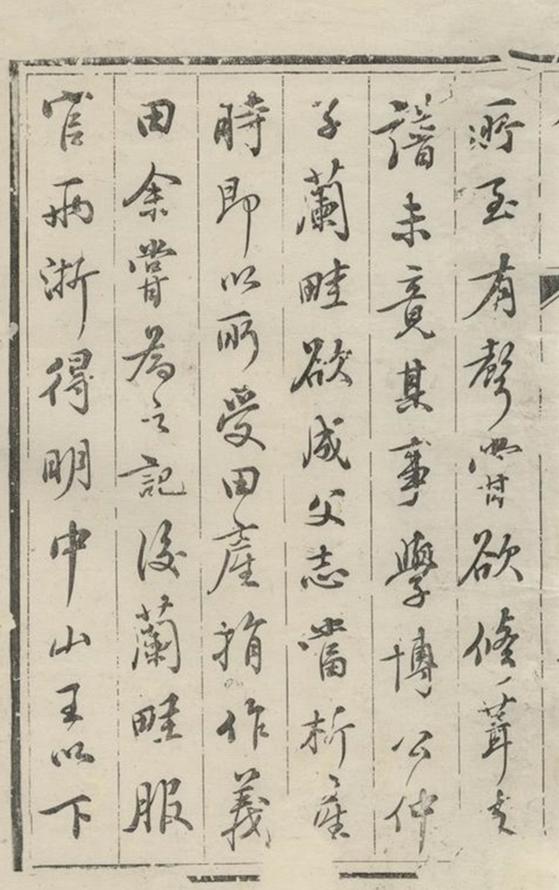 所至有聲嘗欲修葺支
譜未竟其事學博公仲
子蘭畦欲成父志當析產
時即以所受田產捐作義
田余嘗為之記後蘭畦服
官兩浙得明中山王以下